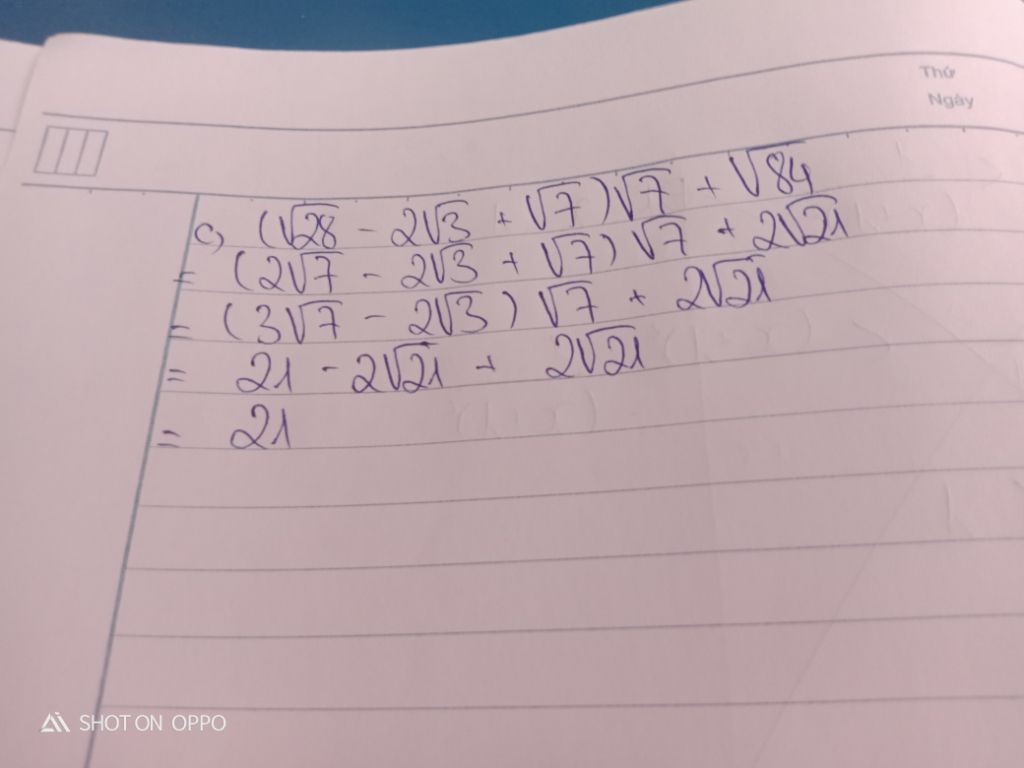 Thứ
Ngày
c, (√28 - 2√3 + √7)√7 + √84
= (2√7 - 2√3 + √7) √7 + 2√21
= (3√7 - 2√3) √7 + 2√21
= 21 - 2√21 + 2√21
= 21
SHOT ON OPPO